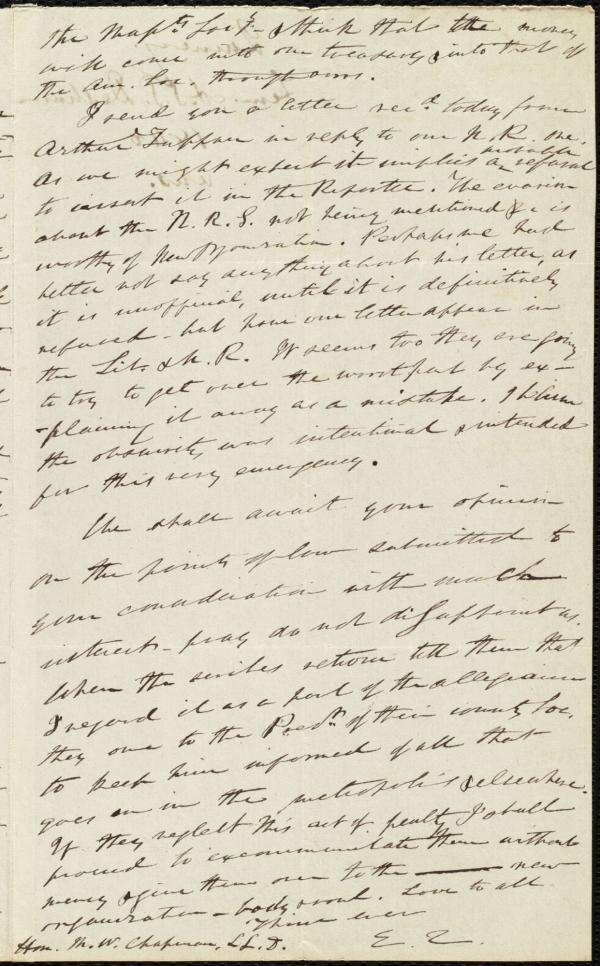 the Mass.ts Soc.y - & think that the money
will come into our treasury & into that of
the Am. Soc. through ours.
I send you a letter rec.d today from
Arthur Tappan in reply to our N. R. one.
As we might expect it implies a probable refusal
to insert it in the Reporter. The evasion
about the N. R. S. not being mentioned &c is
worthy of New Organization. Perhaps we had
better not say anything about his letter, as
it is unofficial, until it is definitively
refused - but have our letter appear in
the Lib. & N. R. It seems too they are going
to try to get over the worst part by ex-
-plaining it away as a mistake.
the obscurity was intentional & intended
for this very emergency.
We shall await your opinion
on the points of law submitted to
your consideration with much
interest - pray do not disappoint us.
When the scribes return tell them that
I regard it as a part of the allegiance
they owe to the Presd.t of their county Soc.
to keep him informed of all that
goes on in the metropolis & elsewhere.
If they neglect this act of fealty I shall
proceed to excommunicate them without
mercy & give them over to the ——— new
organization - body & soul. Love to all
Thine ever
E. Q.
Hon. M. W. Chapman, LL. D.